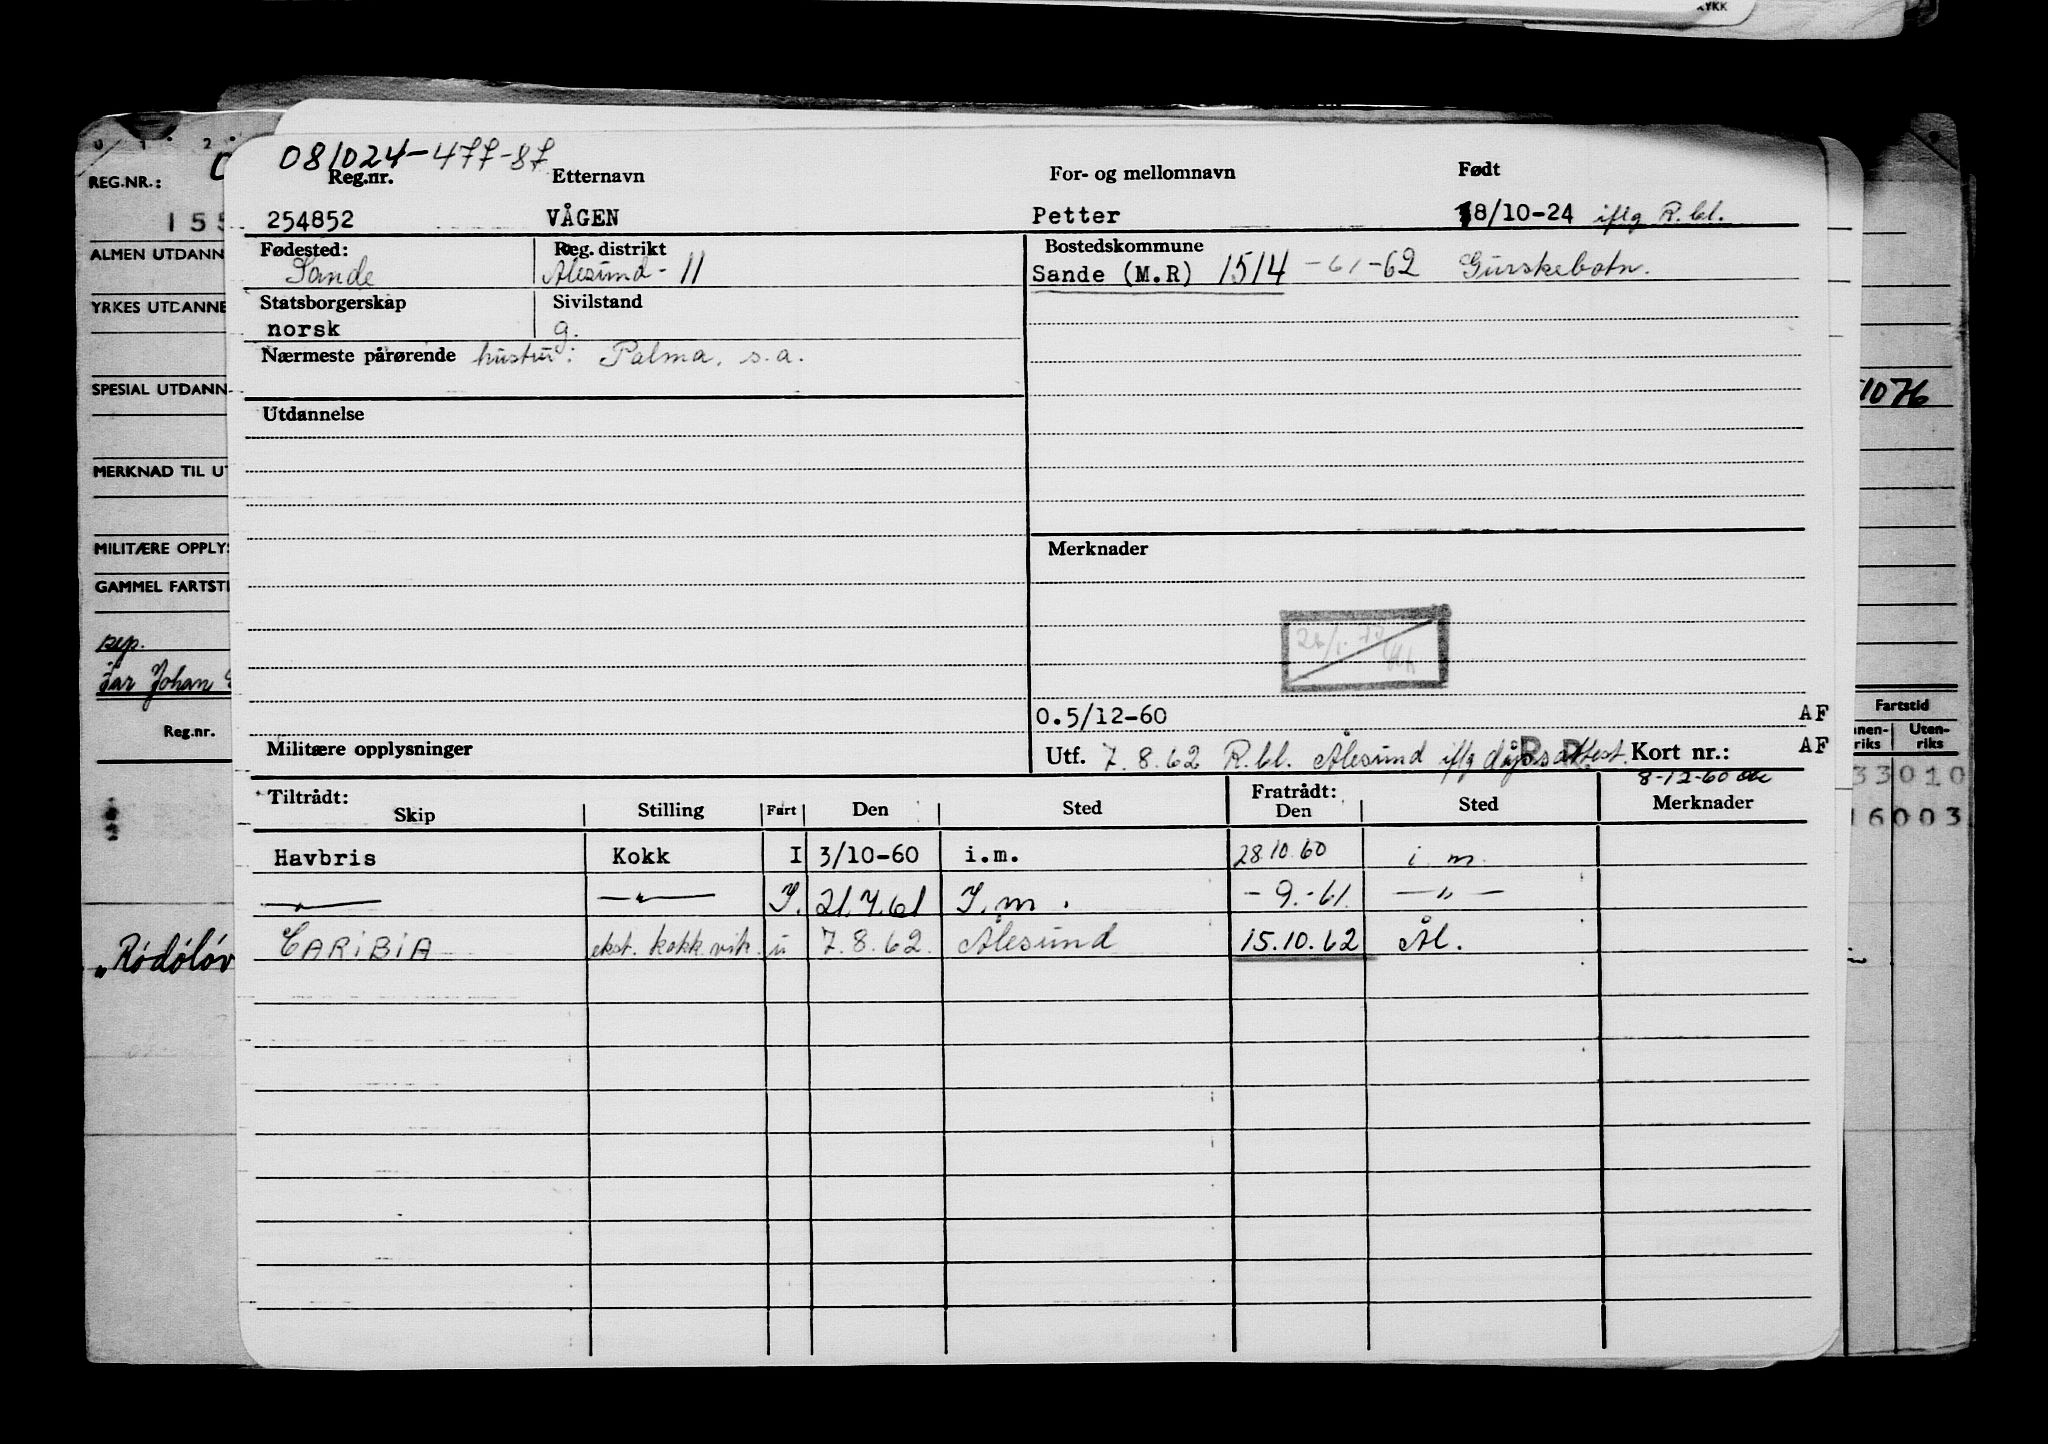 RYKK
0 1 2
REG.NR.:
155
ALMEN UTDANN
YRKES UTDANNE
SPESIAL UTDANN
MERKNAD TIL UT
MILITÆRE OPPLYS
GAMMEL FARTSTI
rep.
far Johan
Reg.nr.
"Rödölöv
081024-477-87
Reg.nr. Etternavn For- og mellomnavn Født
254852 VÅGEN Petter 8/10-24 iflg R.bl.
Fødested: Reg. distrikt Bostedskommune
Sande Ålesund - 11 Sande (M.R) 1514 -61-62 Gurskebotn.
Statsborgerskap Sivilstand
norsk g.
Nærmeste pårørende hustru: Palma, s.a.
Utdannelse
Merknader
0.5/12-60 AF
Militære opplysninger Utf. 7.8.62 R.bl. Ålesund iflg dåpsattest. Kort nr.: AF
8-12-60
Tiltrådt: Fratrådt:
Skip Stilling Fart Den Sted Den Sted Merknader
Havbris Kokk I 3/10-60 i.m. 28 10. 60 i m.
—"— —"— I. 21.7.61 I.m. - 9.-61. —"—
CARIBIA ekst. kokk vik. u 7.8.62. Ålesund 15.10.62 Ål.
1076
Fartstid
nen-riks Uten-riks
33010
16003